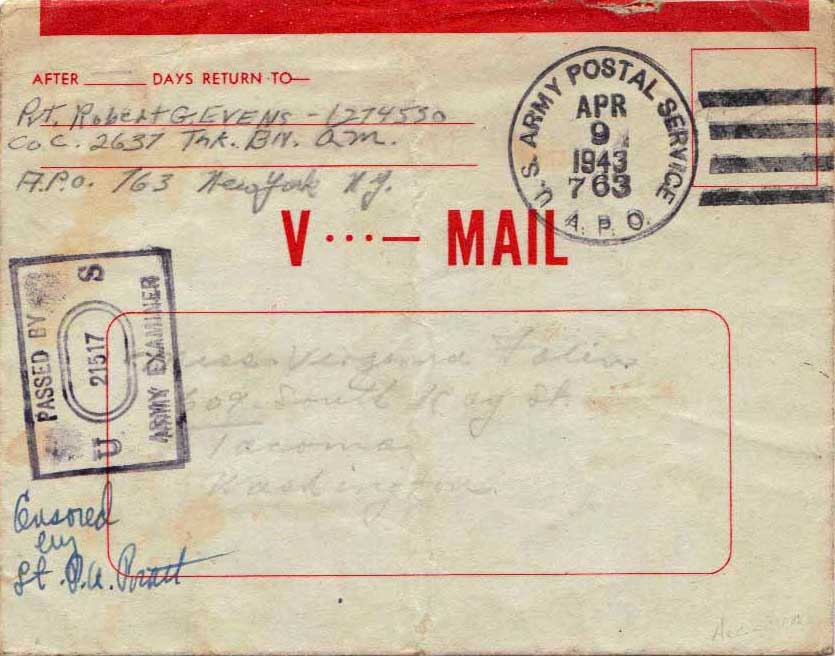 AFTER ______ DAYS RETURN TO—
Pvt. Robert G. EVENS - 1274530
Co C. 2637 Trk. BN. Q.M.
A.P.O. 763 New York N.Y.
U.S. ARMY POSTAL SERVICE
APR
9
1943
763
A. P. O.
V ···— MAIL
PASSED BY
U S
21517
ARMY EXAMINER
Miss Virginia
609 South Kay St.
Tacoma
Washington
Censored
by
Lt. P.A. Pratt